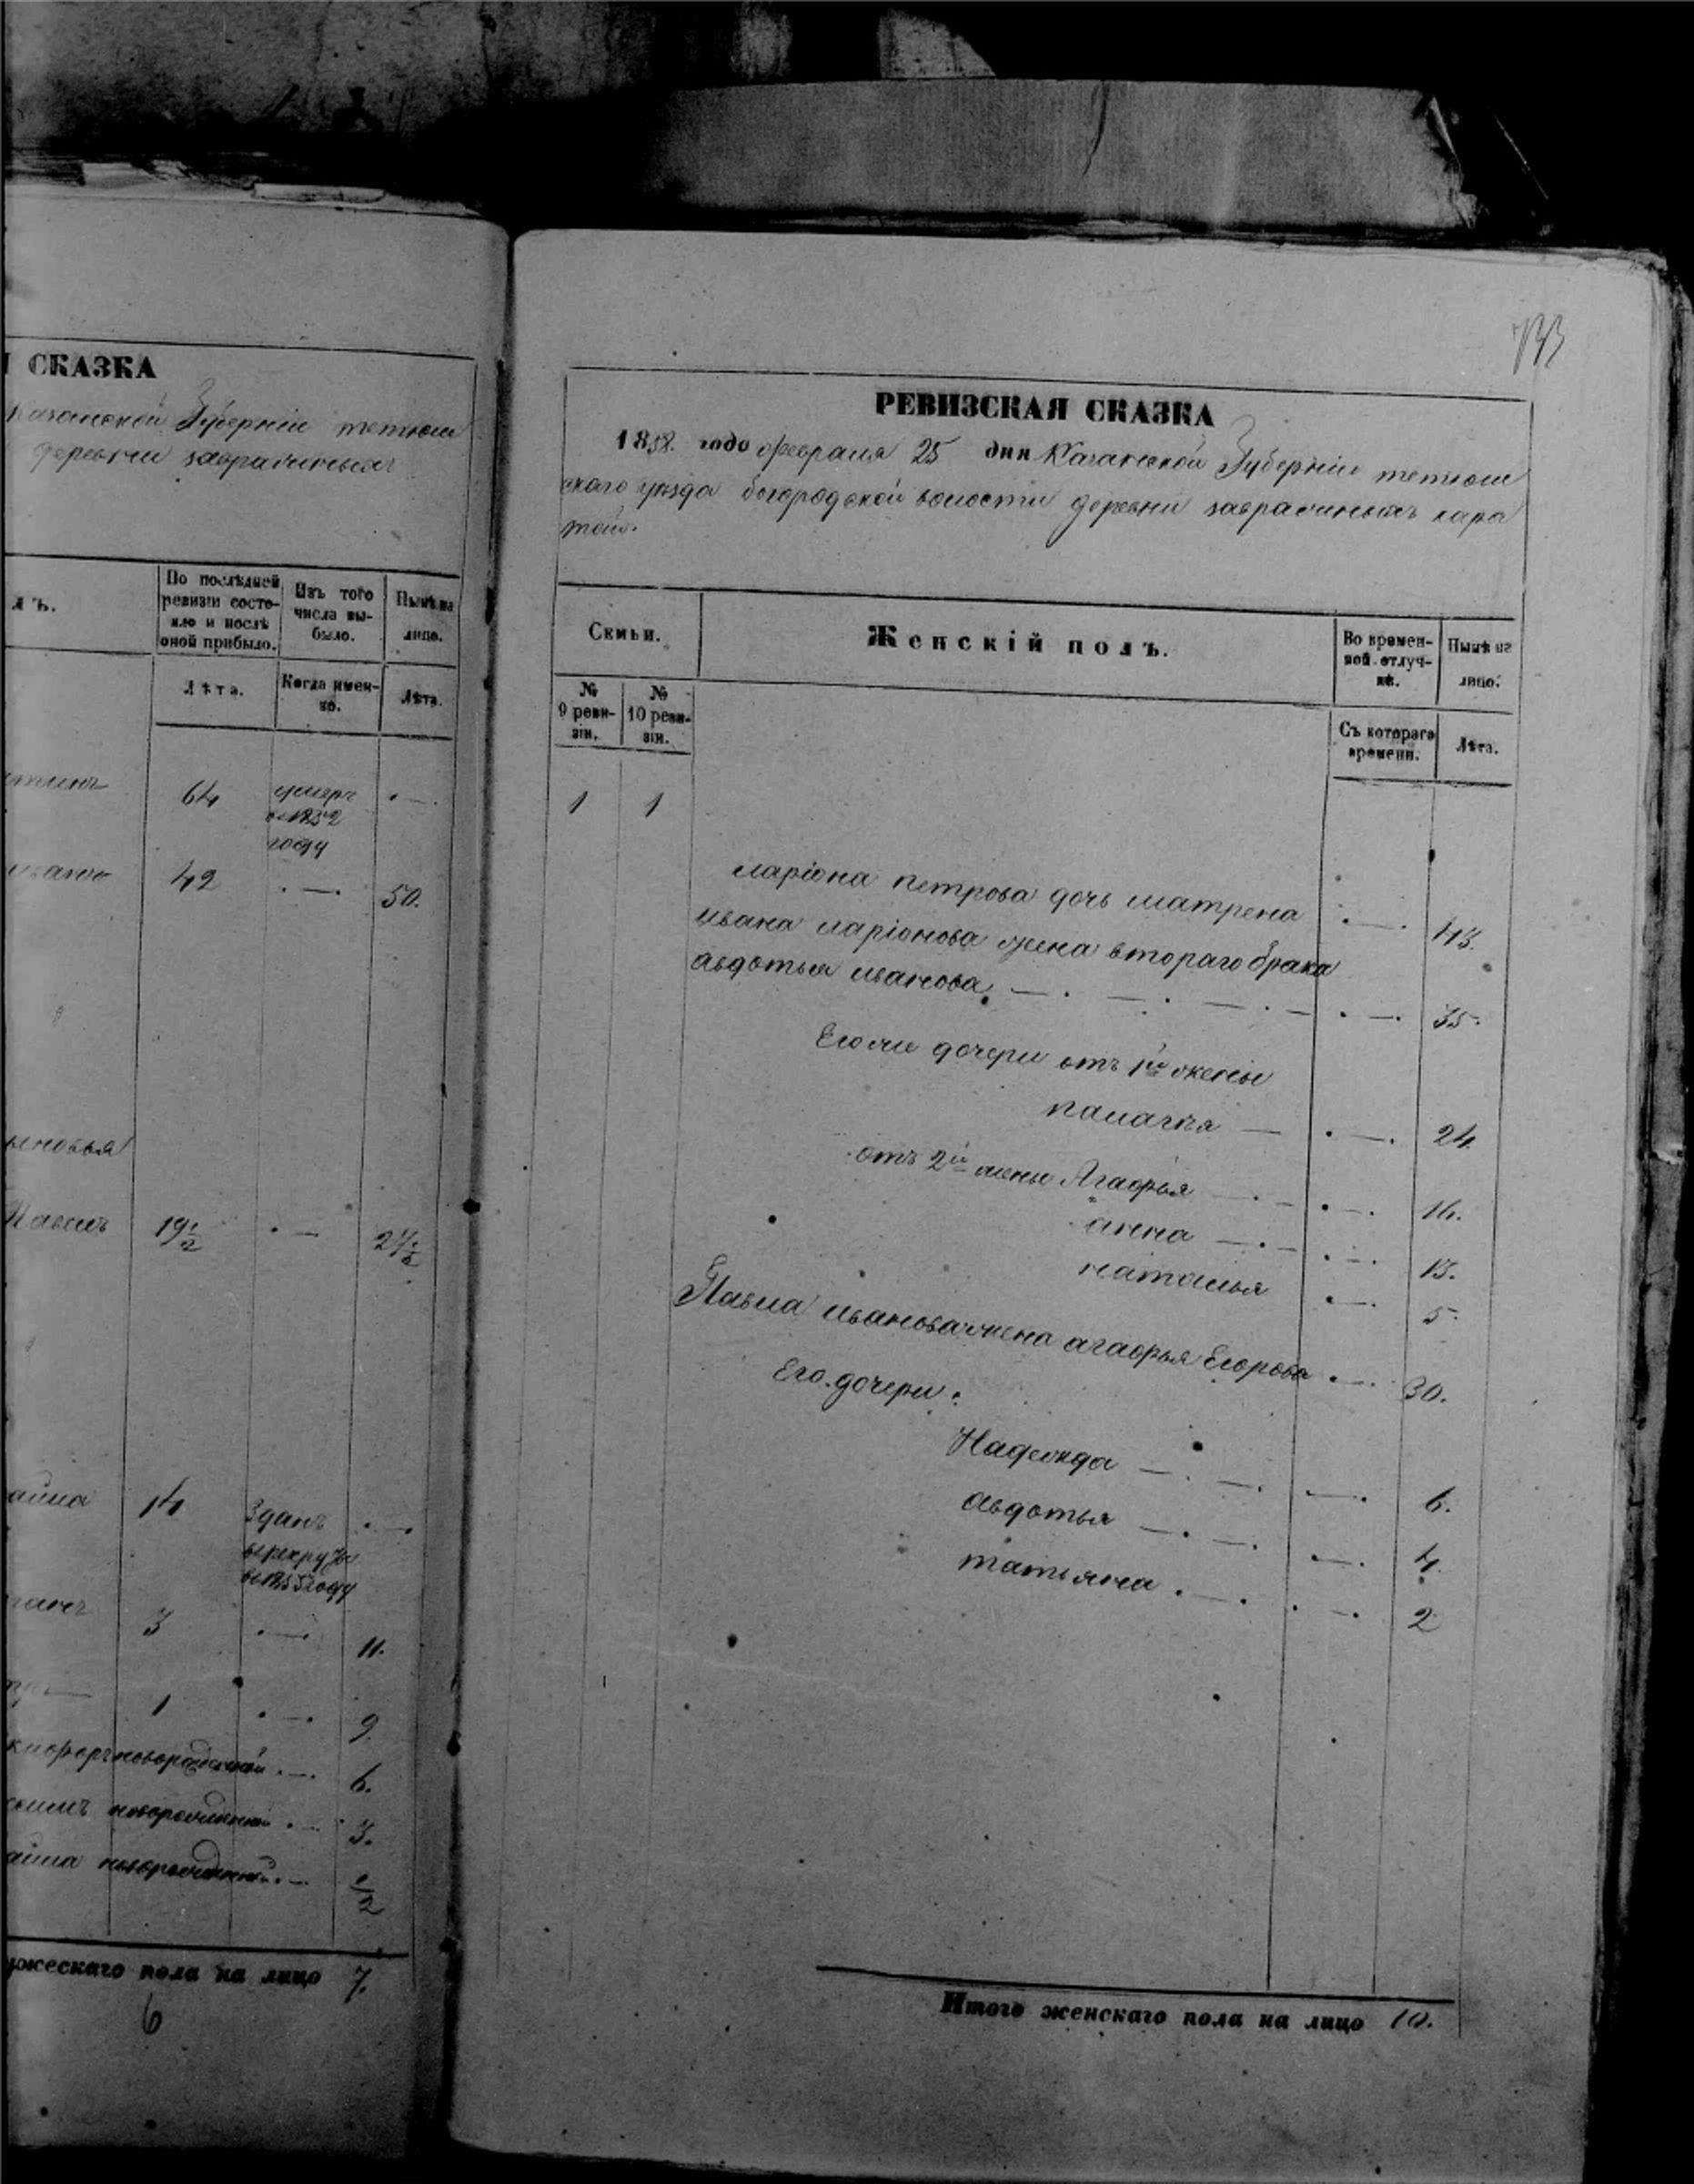 СКАЗКА
Казанской Губерніи тетюш
деревни завражныхъ
лъ.
По послѣдней
ревизіи состо-
яло и послѣ
оной прибыло.
Изъ того
числа вы-
было.
Нынѣ на
лицо.
Лѣта.
Когда имен-
но.
Лѣта.
64 умеръ
въ 1852
году
42 50.
Павелъ 19 1/2 27 1/2
14 Зданъ
въ рекруты
въ 1855 году
3 11.
1 9.
новорожденный 6.
новорожденный 3.
новорожденный 1/2
жескаго пола на лицо 7.
6
733
РЕВИЗСКАЯ СКАЗКА
1858. года февраля 25 дня Казанской Губерніи тетюш
скаго уѣзда богородской волости деревни завражныхъ кара
тай.
Семьи.
Женскій полъ.
Во времен-
ной отлуч-
кѣ.
Нынѣ на
лицо.
№
9 реви-
зіи.
№
10 реви-
зіи.
Съ котораго
времени.
Лѣта.
1 1
ларіона петрова дочь матрена 43.
ивана ларіонова жена втораго брака
авдотья иванова 35.
Его же дочери отъ 1й жены
палагея 24
отъ 2й жены Агафья 16.
анна 13.
наталья 5.
Павла иванова жена агафья Егорова 30.
Его дочери:
Надежда 6.
авдотья 4.
татьяна 2
Итого женскаго пола на лицо 10.